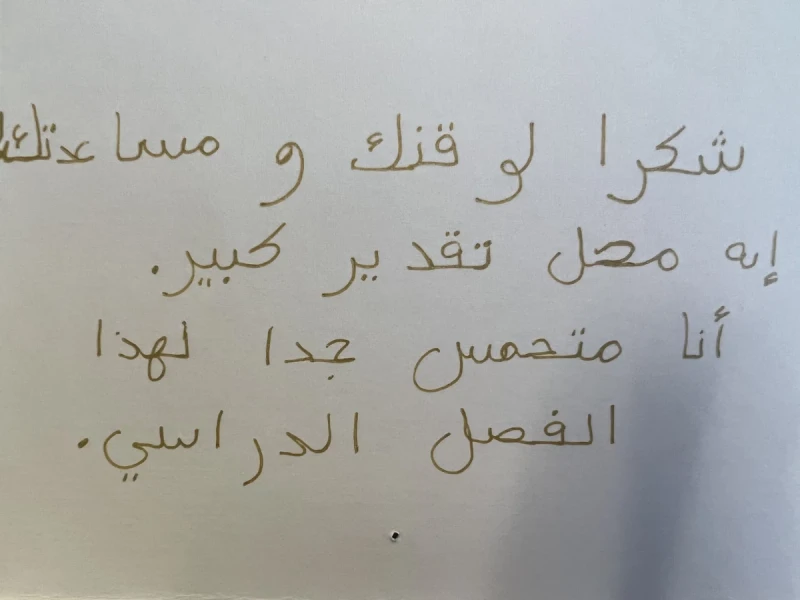 شكرا لوقتك و مساعتك
إنه محل تقدير كبير.
أنا متحمس جدا لهذا
الفصل الدراسي.